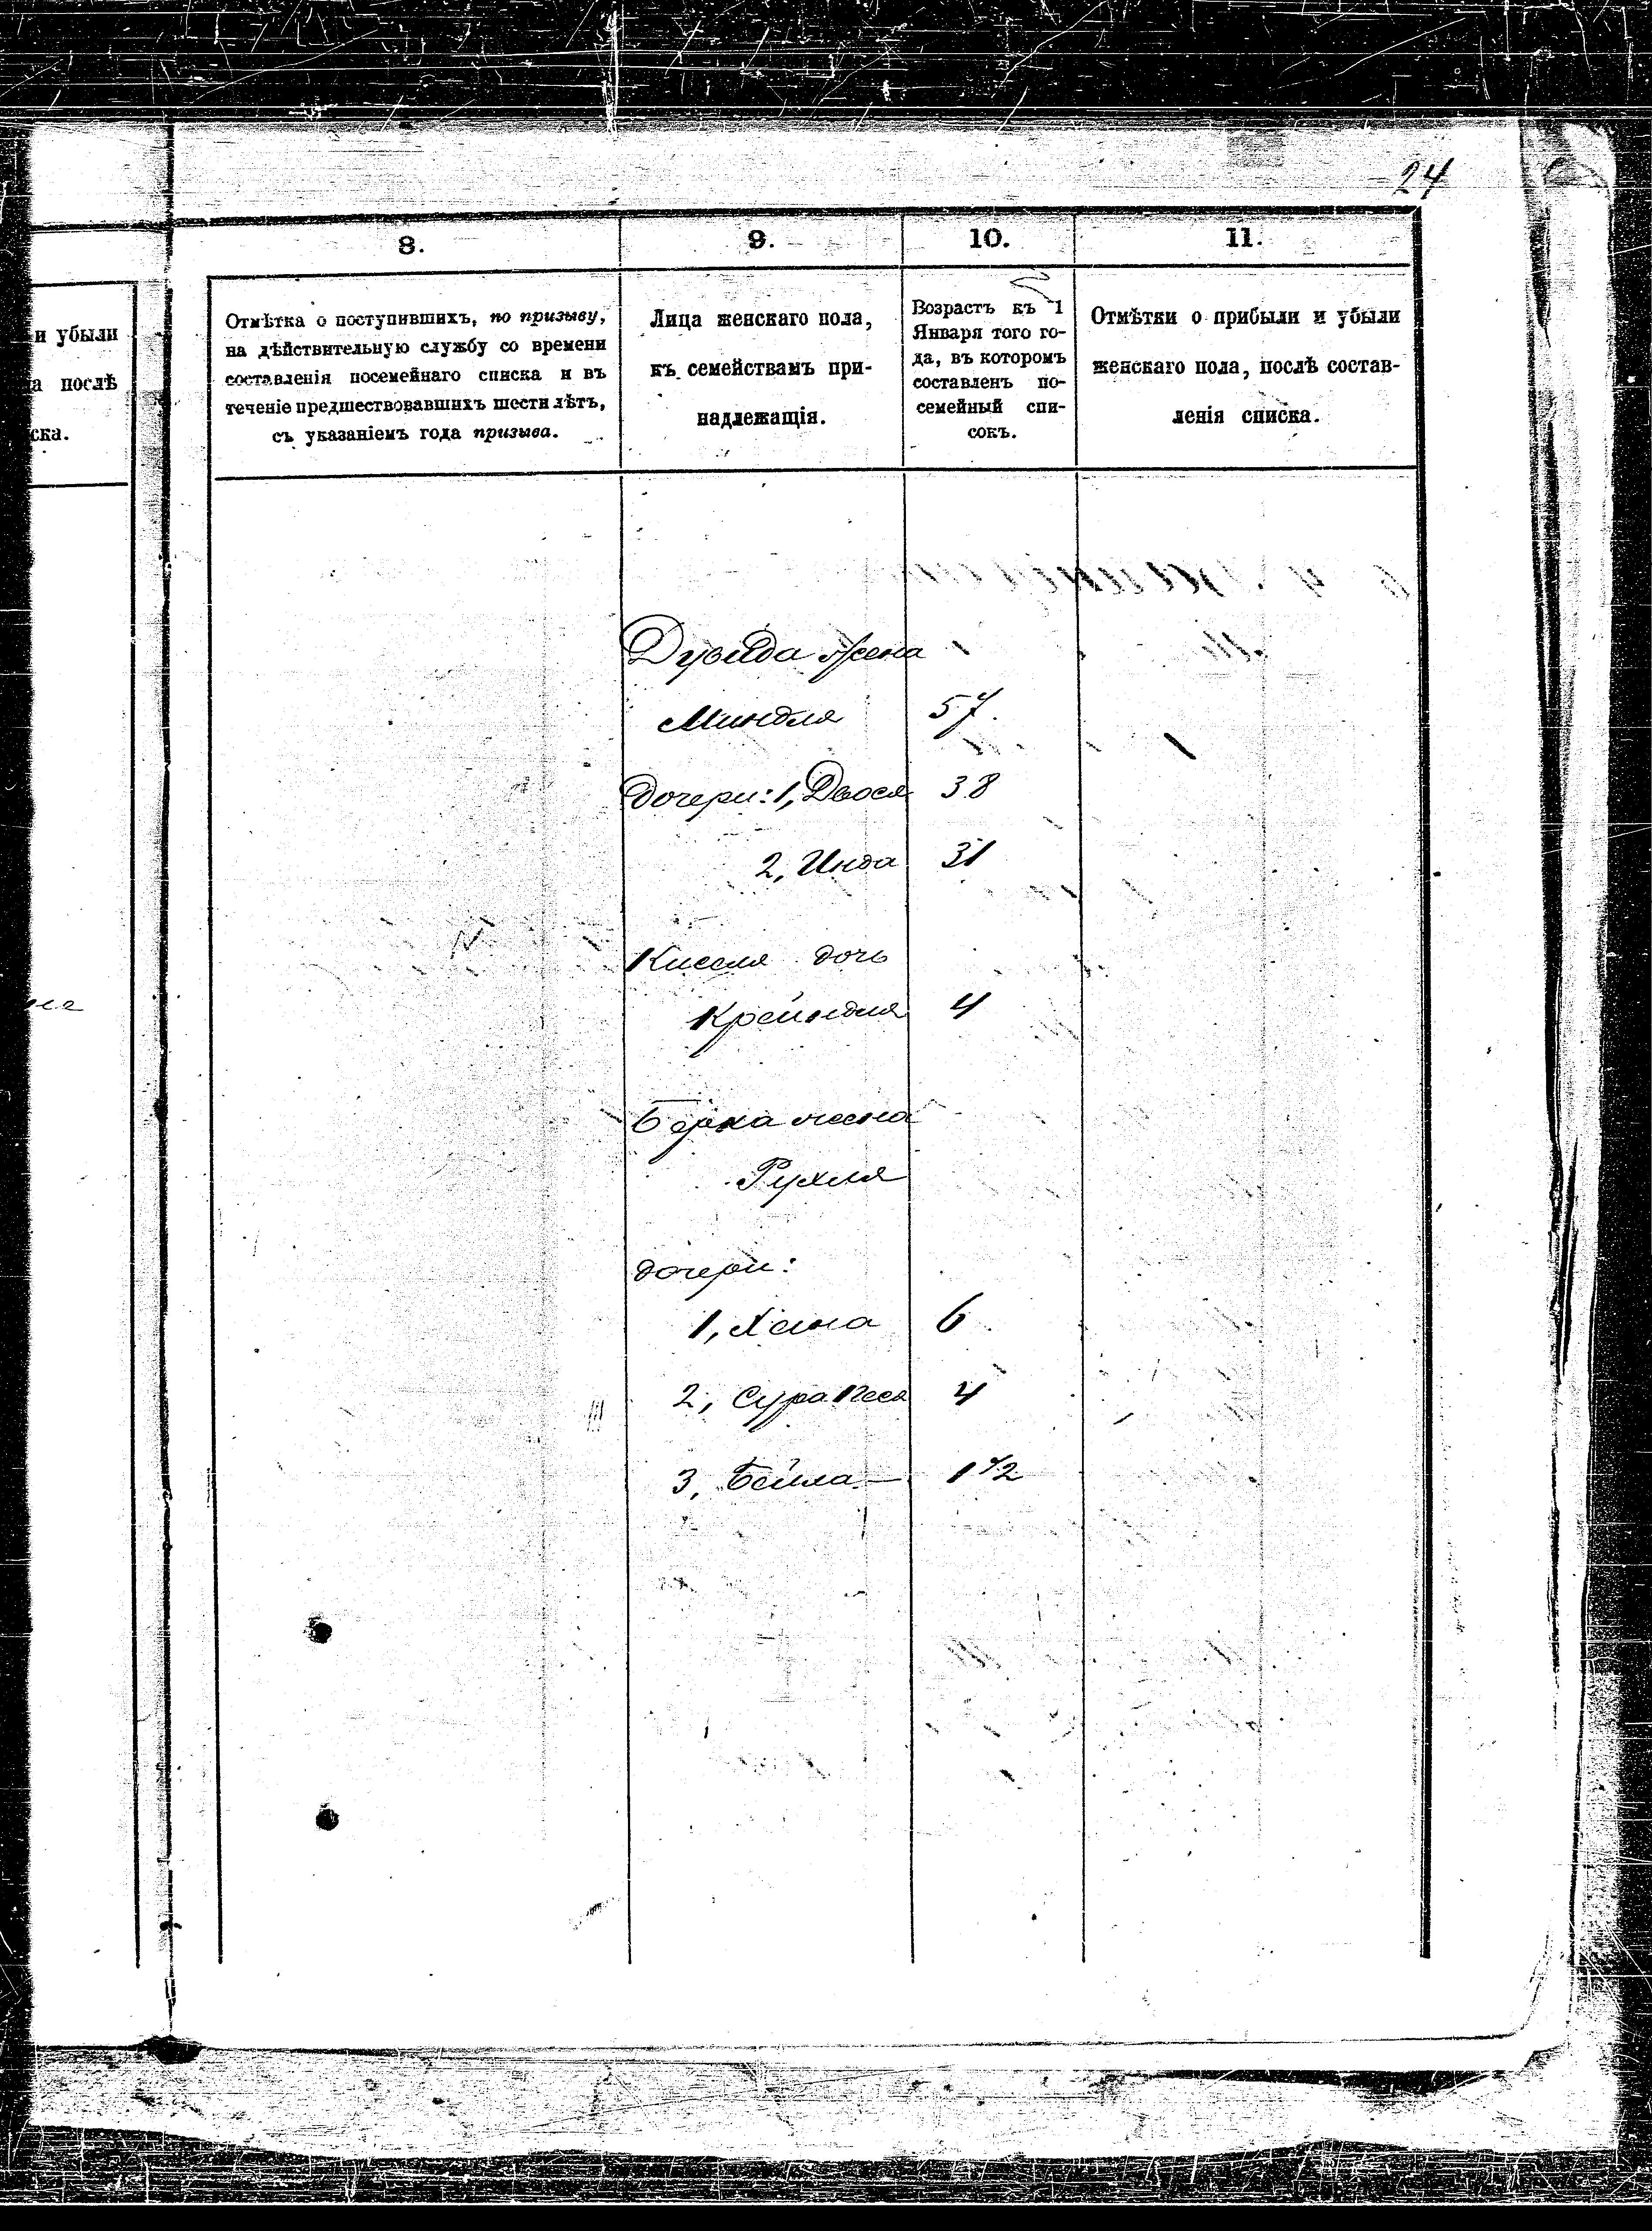 24
8.
9.
10.
11.
и убыли
а послѣ
ска.
Отмѣтка о поступившихъ, по призыву,
на дѣйствительную службу со времени
составленія посемейнаго списка и въ
теченіе предшествовавшихъ шести лѣтъ,
съ указаніемъ года призыва.
Лица женскаго пола,
къ семействамъ при-
надлежащія.
Возрастъ къ 1
Января того го-
да, въ которомъ
составленъ по-
семейный спи-
сокъ.
Отмѣтки о прибыли и убыли
женскаго пола, послѣ состав-
ленія списка.
Дувида жена
Миндля 57.
дочери: 1, Двося 38
2, Инда 31
Киселя дочь
Крейндля 4
Берка жена
Рухля
дочери:
1, Хана 6
2, Сура Песя 4
3, Бейла — 1 1/2